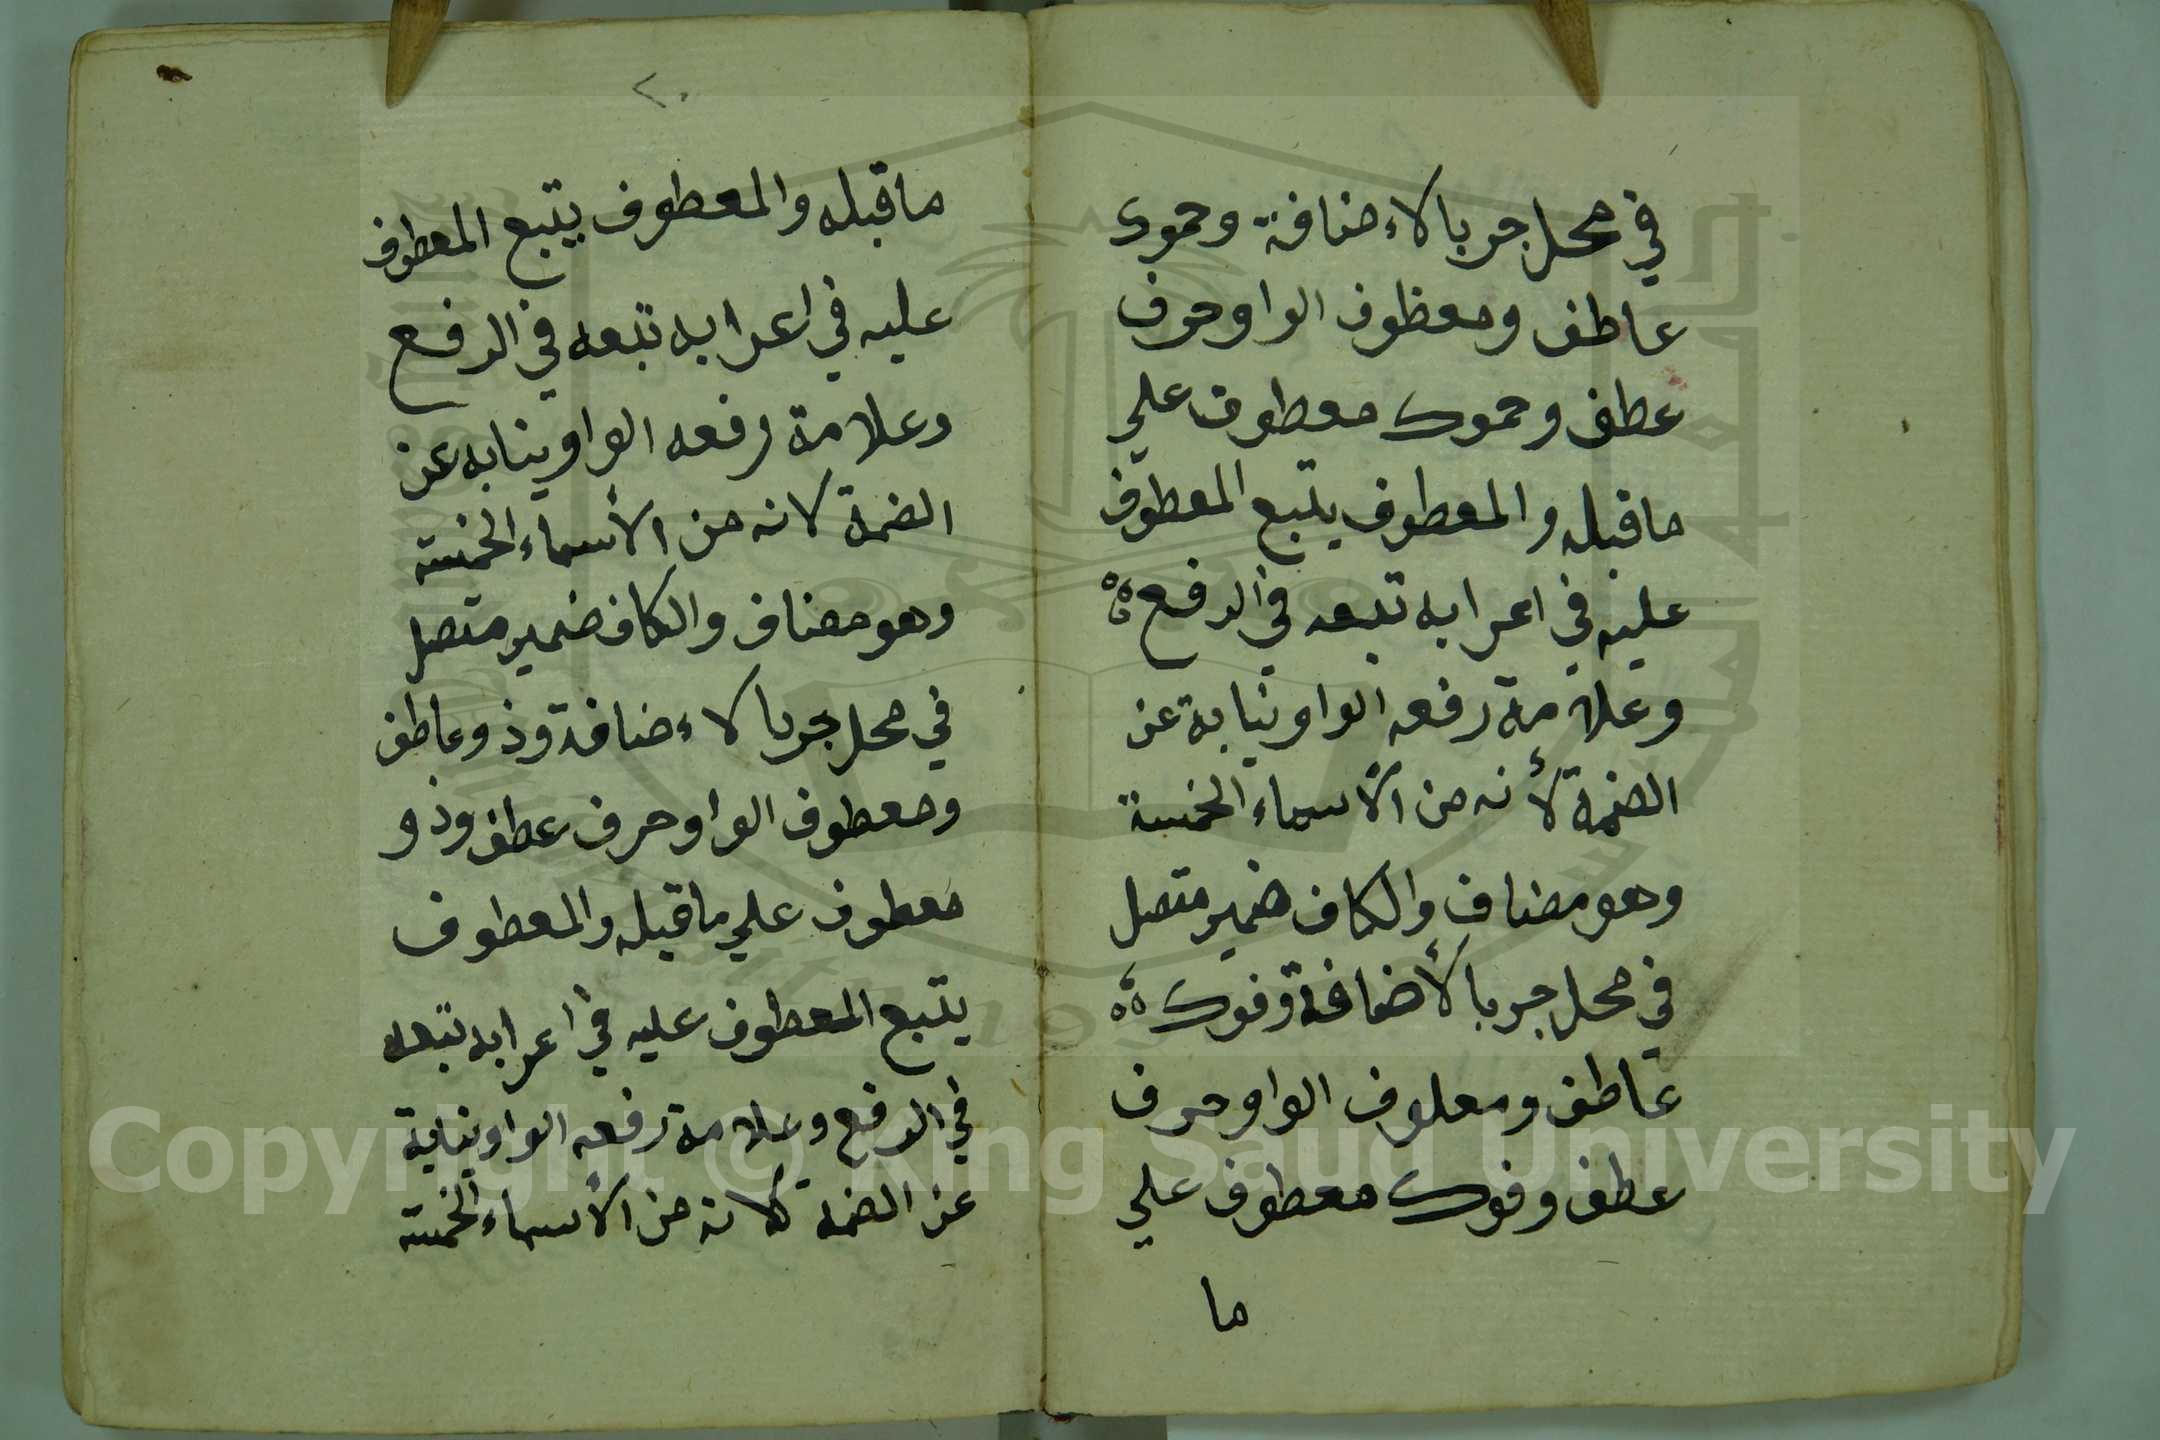 في محل جر بالاءضافة وحموك
عاطف ومعظوف الواو حرف
عطف وحموك معطوف علي
ما قبله والمعطوف يتبع المعطوف
عليه في اعرابه تبعه في الرفع
وعلامة رفعه الواو نيابة عن
الضمة لأنه من الأسماء الخمسة
وهو مضاف والكاف ضمير متصل
في محل جر بالأضافة وفوك
عاطف ومعلوف الواو حرف
عطف وفوك معطوف علي
ما
٢٠
ما قبله والمعطوف يتبع المعطوف
عليه في اعرابه تبعه في الرفع
وعلامة رفعه الواو ينابه عن
الضمة لانه من الأسماء الخمسة
وهو مضاف والكاف ضمير متصل
في محل جر بالاءضافة وذو عاطف
ومعطوف الواو حرف عطف وذو
معطوف علي ما قبله والمعطوف
يتبع المعطوف عليه في اعرابه تبعه
في الرفع وعلامة رفعه الواو نيابة
عن الضمة لانه من الأسماء الخمسة
Copyright © King Saud University